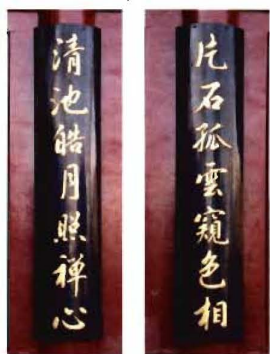 片石孤雲窺色相
清池皓月照禅心